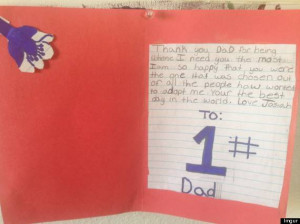 Thank you DaD for being
there I need you the most.
I am so happy that you were
the one that was chosen out
of all the people have wanted
to adopt me. Your the best
day in the world. Love Josiah
TO:
1#
Dad
Imgur